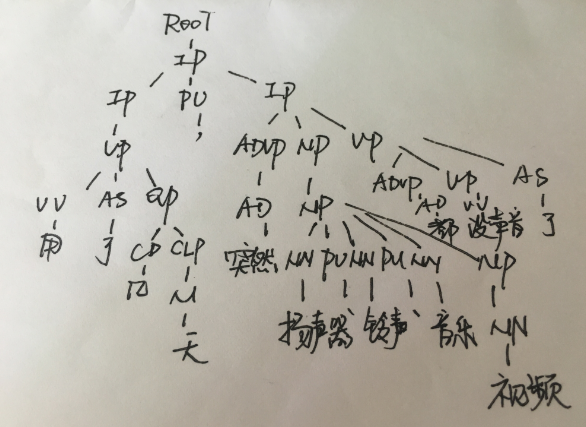 ROOT
IP
IP PU IP
，
VP ADVP NP VP
VV AS QP AD NP ADVP VP AS
用 了 CD CLP AD VV 了
都 没声音
突然 NN PU NN PU NN NP
M
扬声器 、 铃声 、 音乐 NN
天
视频